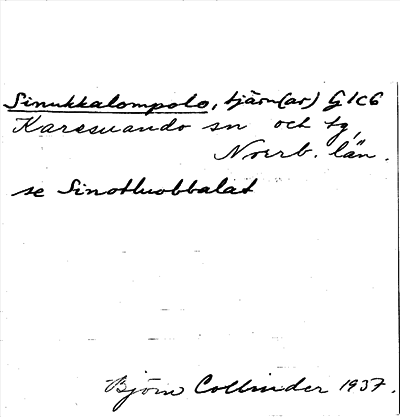 Sinukkalompolo, tjärn(ar) G1c6
Karesuando sn och tg,
Norrb. län.
se Sinotluobbalat
Björn Collinder 1937.